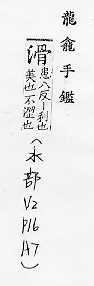 龍龕手鑑
滑
患八反〡利也
美也不澀也
(水部
V2
P16
A7)